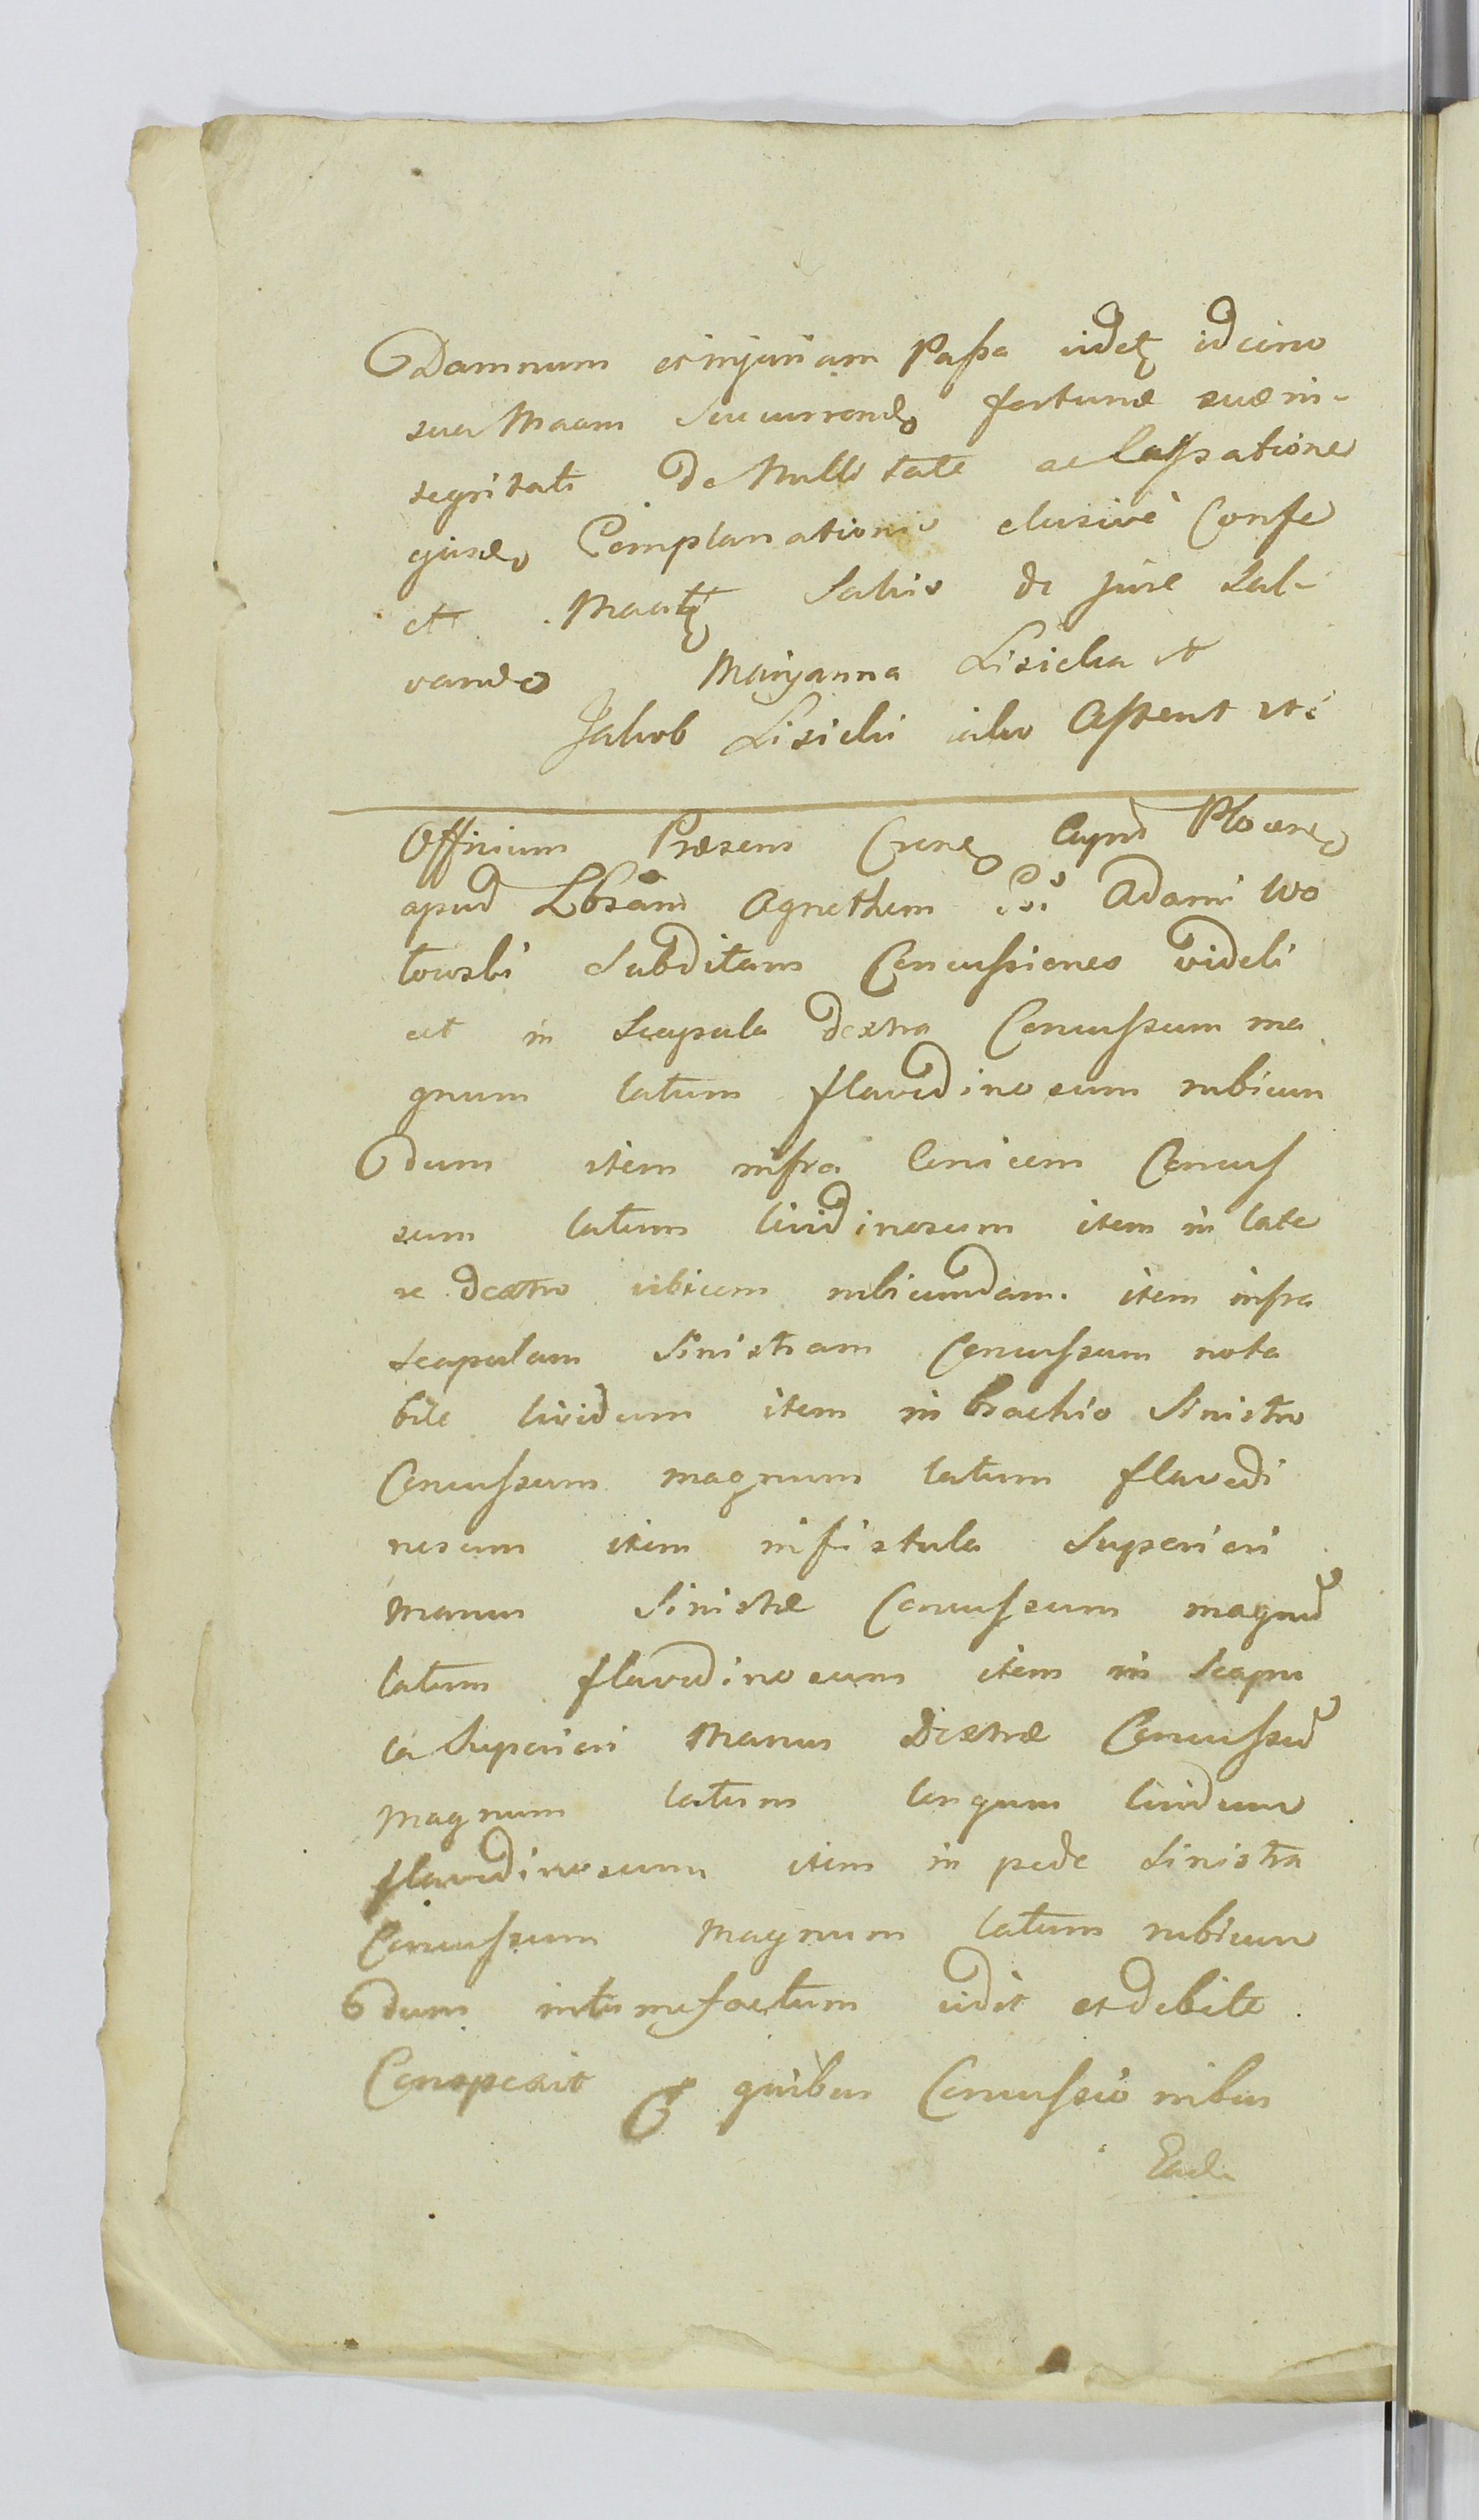 Damnum et injuriam Passa videt idcirco
sua Maam Succurrendo fortunæ suæ in-
tegritati de Nullitate ac Cassatione
ejusdo Complanationis elusivè Confe
ct Maatq Salvis de jure Sal-
vandis Maryanna Lisicka et
Jakob Lisicki idco Assent ut
Officium Præsens Crense Capnd Plocense
apud Lbsam Agnethem Adami Wo
towski Subditam Concussiones videli
cet in Scapula dextra Concussum ma
gnum latum flavedinosum rubicun
dum item infra Cervicem Concus
sum latum lividinosum item in late
re dextro vibicem rubicundam. item infra
Scapulam Sinistram Concussum nota
bile lividum item in brachio Sinistro
Concussum magnum latum flavedi
nosum item in fistula Superiori
manus Sinistræ Concussum magnū
latum flavedinosum item in Scapu
la Superiori Manus Dextræ Concussū
magnum latum longum lividum
flavedinosum item in pede Sinistra
Concussum magnum latum rubicun
dum intumefactum vidit et debite
Conspexit quibus Concussionibus
Ead